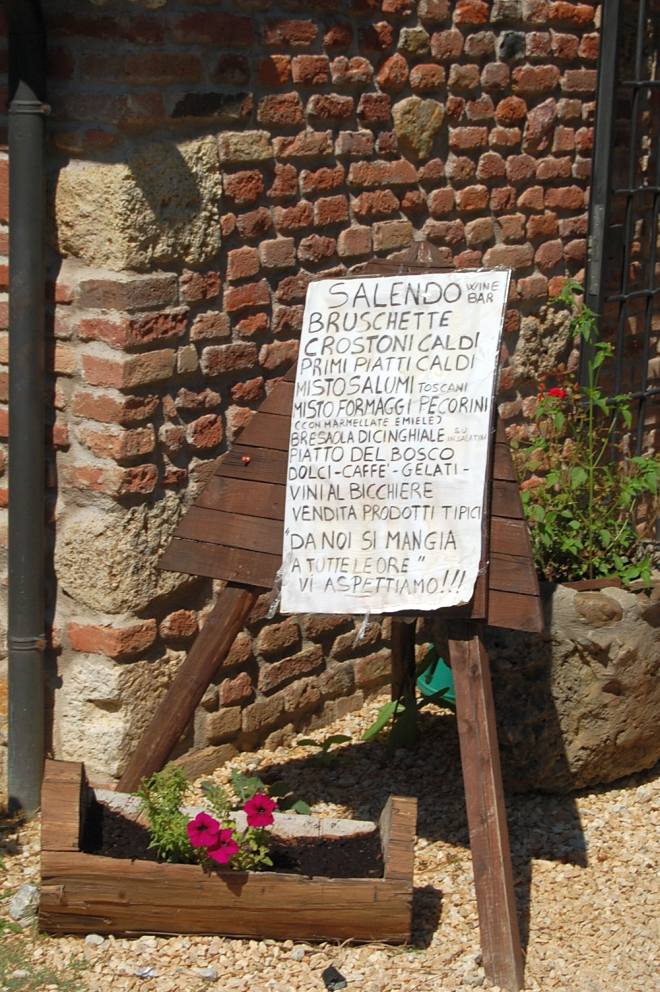 SALENDO WINE BAR
BRUSCHETTE
CROSTONI CALDI
PRIMI PIATTI CALDI
MISTO SALUMI TOSCANI
MISTO FORMAGGI PECORINI
(CON MARMELLATE E MIELE)
BRESAOLA DI CINGHIALE SU INSALATINA
PIATTO DEL BOSCO
DOLCI-CAFFE'-GELATI-
VINI AL BICCHIERE
VENDITA PRODOTTI TIPICI
"DA NOI SI MANGIA
A TUTTE LE ORE"
VI ASPETTIAMO!!!